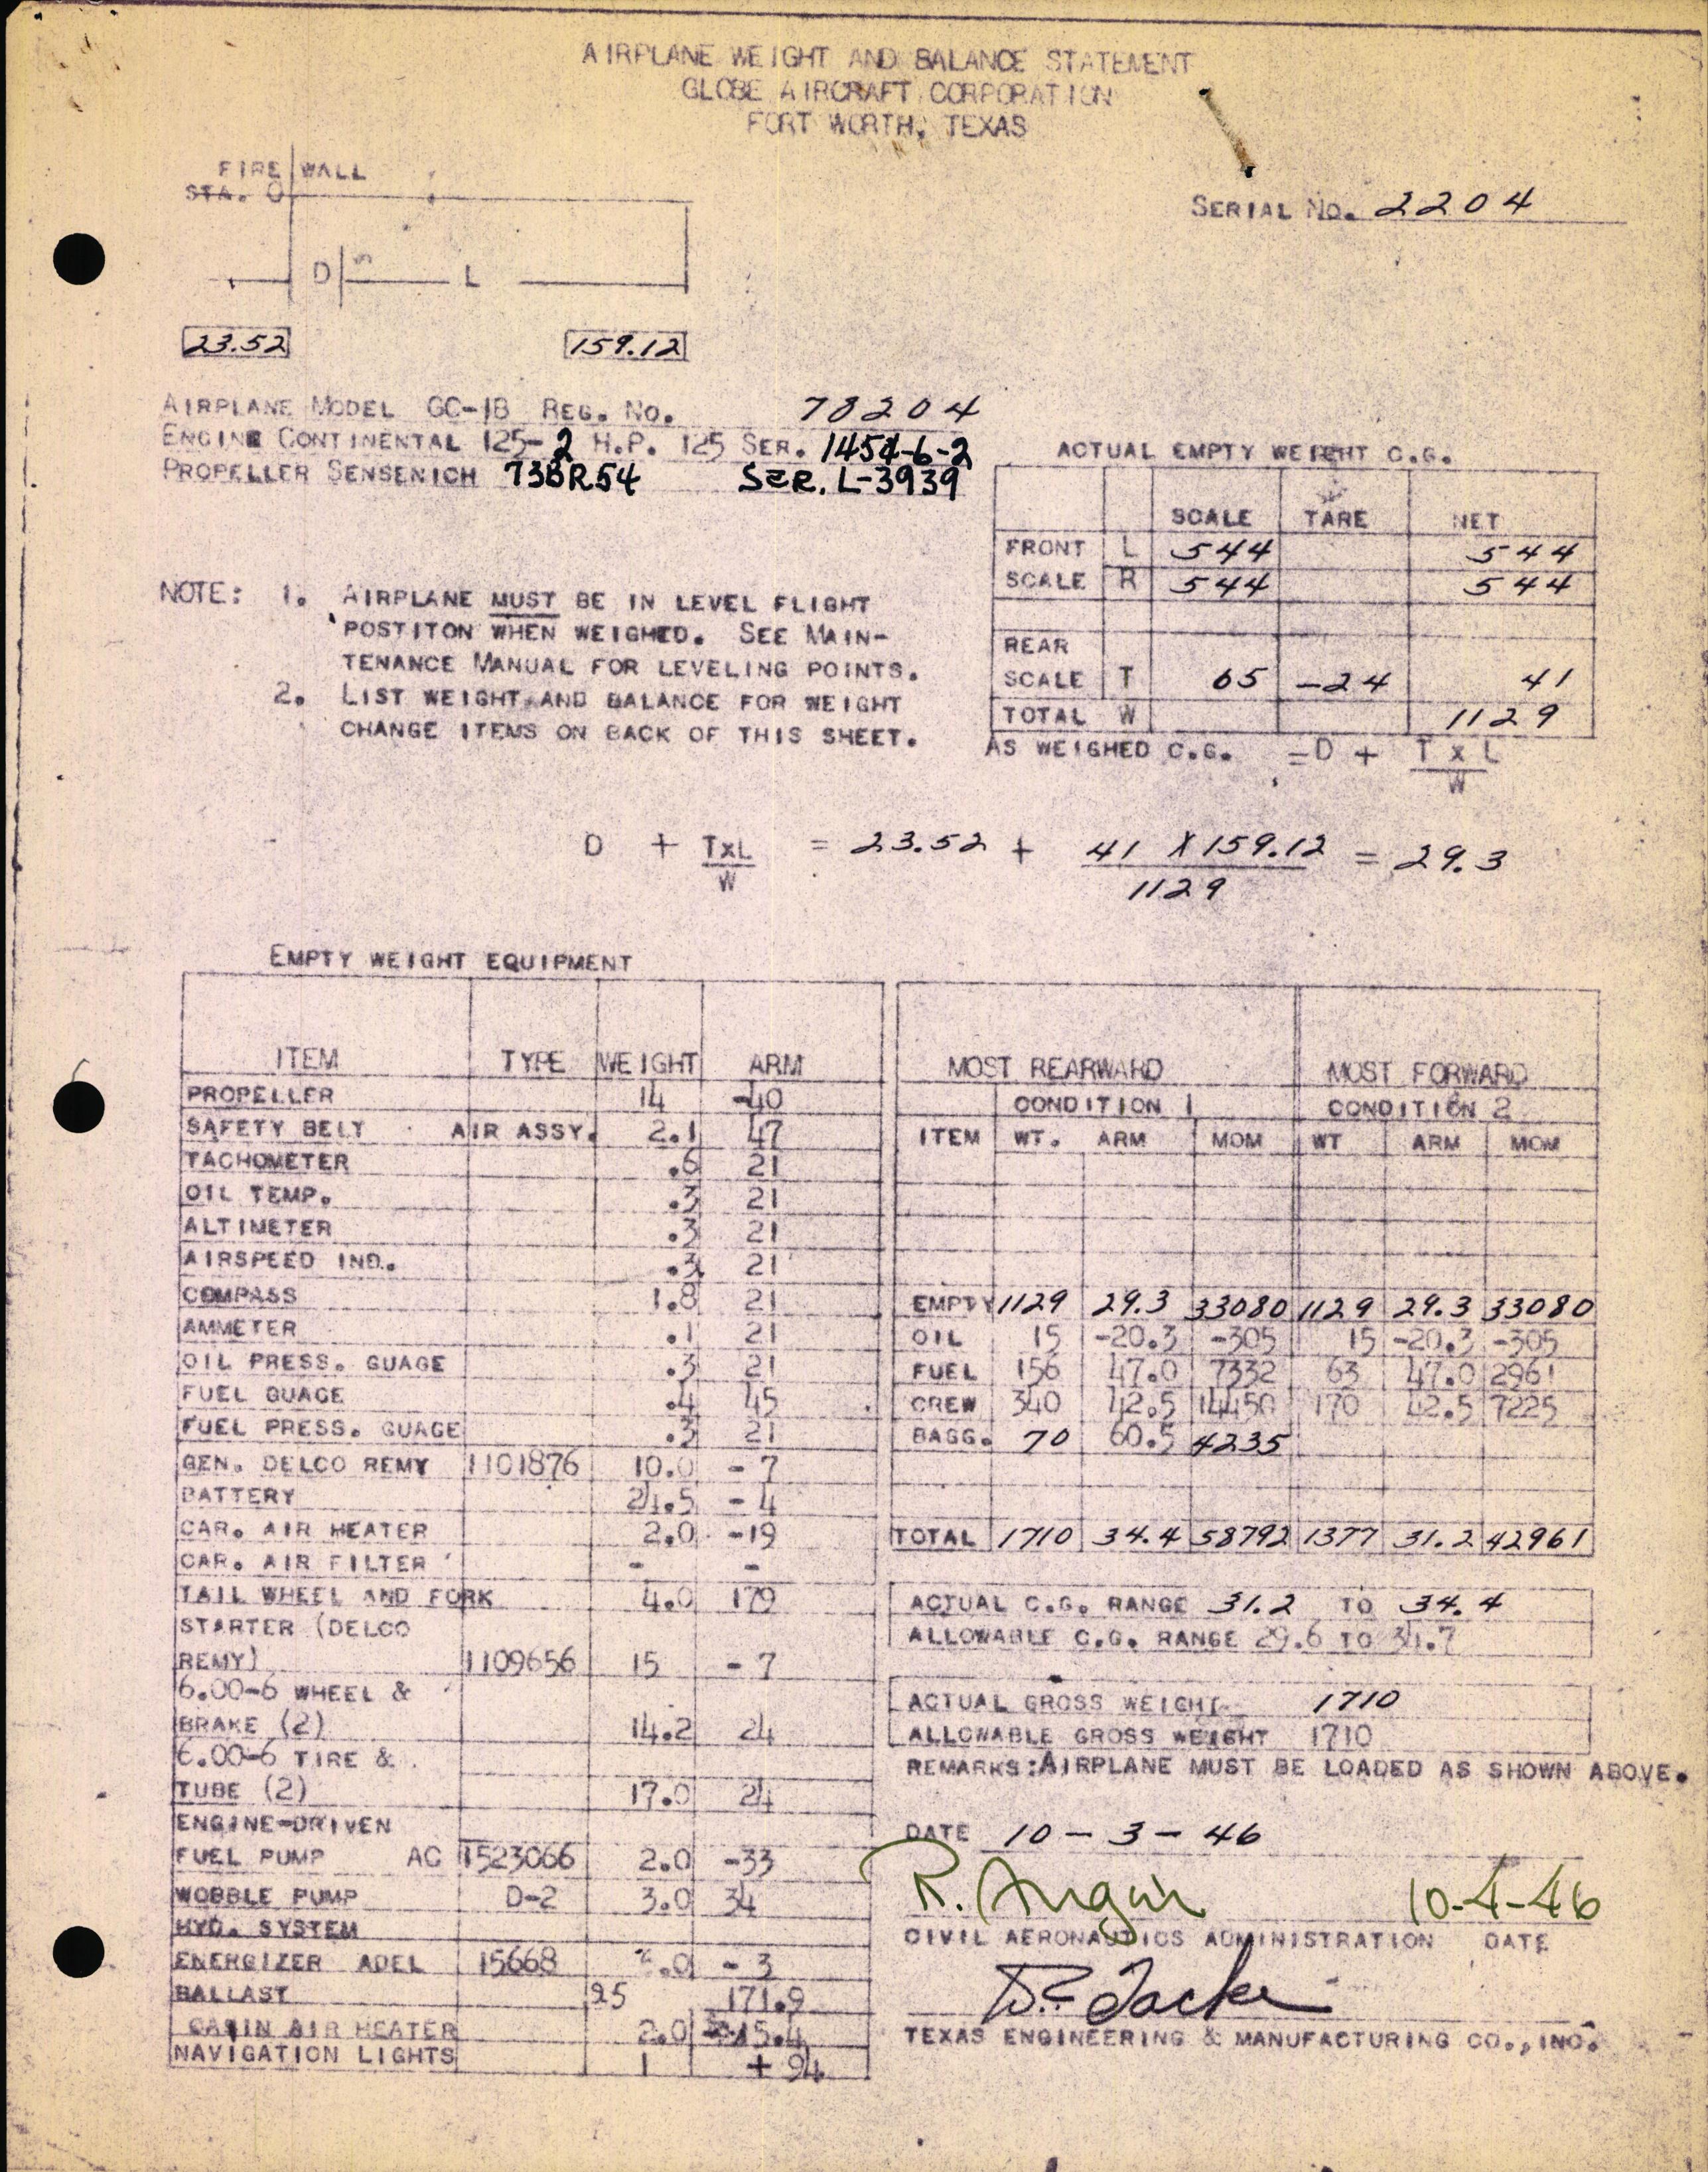 AIRPLANE WEIGHT AND BALANCE STATEMENT
GLOBE AIRCRAFT CORPORATION
FORT WORTH, TEXAS
FIRE WALL
STA. 0
SERIAL NO. 2204
D L
23.52 159.12
AIRPLANE MODEL GC-1B REG. NO. 78204
ENGINE CONTINENTAL 125-2 H.P. 125 SER. 1454-6-2
PROPELLER SENSENICH 73BR54 SER. L-3939
ACTUAL EMPTY WEIGHT C.G.
SCALE TARE NET
FRONT L 544 544
SCALE R 544 544
REAR
SCALE T 65 -24 41
TOTAL W 1129
AS WEIGHED C.G. =D + T x L
W
NOTE: 1. AIRPLANE MUST BE IN LEVEL FLIGHT
POSTITON WHEN WEIGHED. SEE MAIN-
TENANCE MANUAL FOR LEVELING POINTS.
2. LIST WEIGHT AND BALANCE FOR WEIGHT
CHANGE ITEMS ON BACK OF THIS SHEET.
D + TxL = 23.52 + 41 X 159.12 = 29.3
W 1129
EMPTY WEIGHT EQUIPMENT
ITEM TYPE WEIGHT ARM
PROPELLER 14 -40
SAFETY BELT AIR ASSY. 2.1 47
TACHOMETER .6 21
OIL TEMP. .3 21
ALTIMETER .3 21
AIRSPEED IND. .3 21
COMPASS 1.8 21
AMMETER .1 21
OIL PRESS. GUAGE .3 21
FUEL GUAGE .4 45
FUEL PRESS. GUAGE .3 21
GEN. DELCO REMY 1101876 10.0 - 7
BATTERY 24.5 - 4
CAR. AIR HEATER 2.0 -19
CAR. AIR FILTER - -
TAIL WHEEL AND FORK 4.0 179
STARTER (DELCO
REMY) 1109656 15 - 7
6.00-6 WHEEL &
BRAKE (2) 14.2 24
6.00-6 TIRE &
TUBE (2) 17.0 24
ENGINE-DRIVEN
FUEL PUMP AC 1523066 2.0 -33
WOBBLE PUMP D-2 3.0 34
HYD. SYSTEM
ENERGIZER ADEL 15668 .0 - 3
BALLAST 25 171.9
CABIN AIR HEATER 2.0 15.4
NAVIGATION LIGHTS 1 + 94
MOST REARWARD MOST FORWARD
CONDITION 1 CONDITION 2
ITEM WT. ARM MOM WT ARM MOM
EMPTY 1129 29.3 33080 1129 29.3 33080
OIL 15 -20.3 -305 15 -20.3 -305
FUEL 156 47.0 7332 63 47.0 2961
CREW 340 42.5 14450 170 42.5 7225
BAGG. 70 60.5 4235
TOTAL 1710 34.4 58792 1377 31.2 42961
ACTUAL C.G. RANGE 31.2 TO 34.4
ALLOWABLE C.G. RANGE 29.6 TO 34.7
ACTUAL GROSS WEIGHT 1710
ALLOWABLE GROSS WEIGHT 1710
REMARKS: AIRPLANE MUST BE LOADED AS SHOWN ABOVE.
DATE 10-3-46
R. 10-4-46
CIVIL AERONAUTICS ADMINISTRATION DATE
TEXAS ENGINEERING & MANUFACTURING CO., INC.